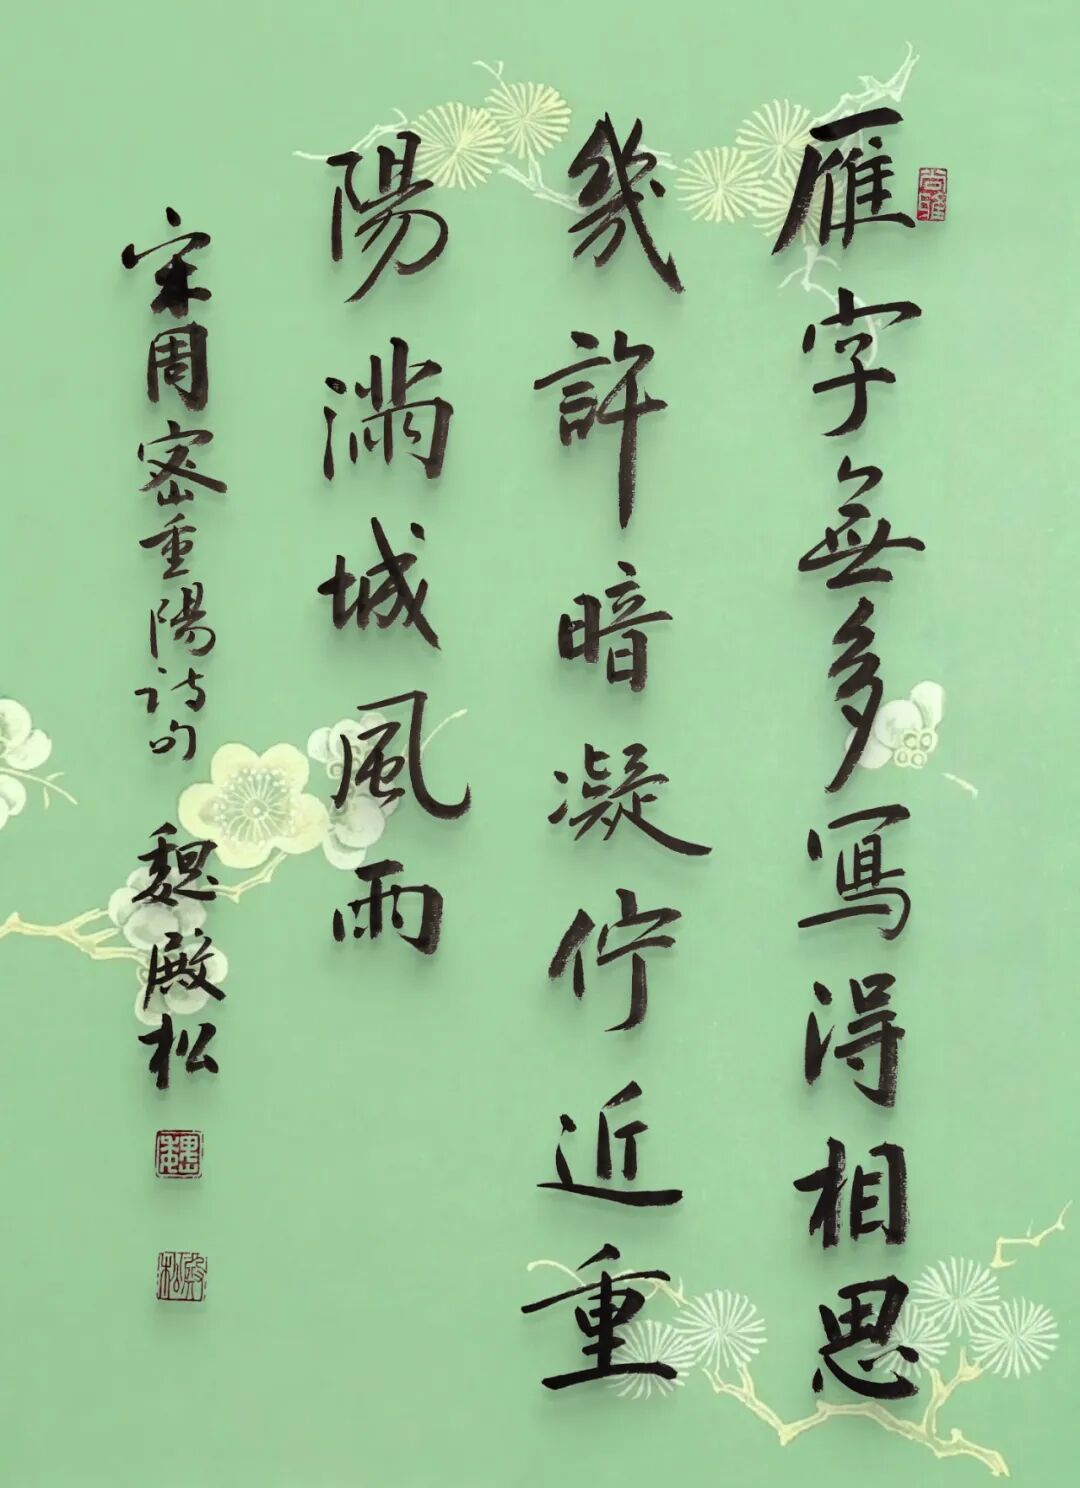 雁字無多寫得相思
幾許暗凝佇近重
陽滿城風雨
宋周密重陽詩句 魏殿松
尚雅
魏
殿松